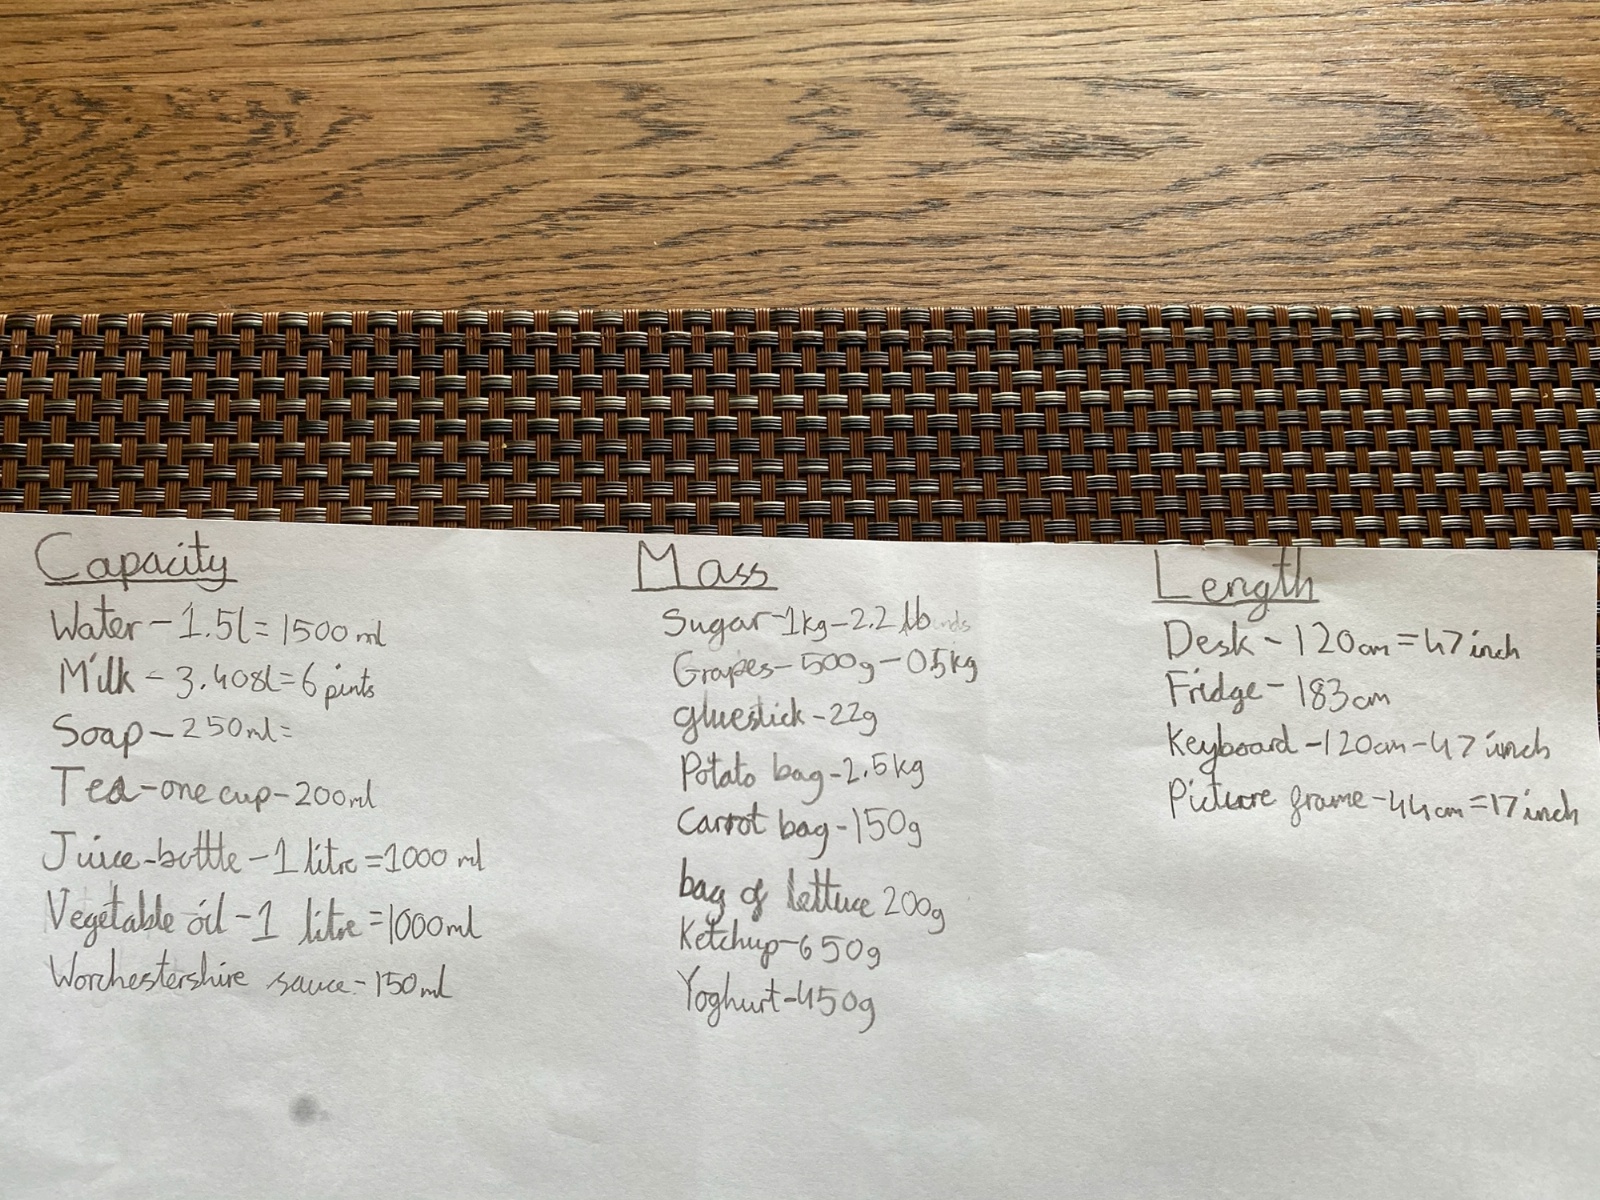 Capacity
Water - 1.5l = 1500ml
Milk - 3.408l = 6 pints
Soap - 250ml =
Tea - one cup - 200ml
Juice - bottle - 1 litre = 1000 ml
Vegetable oil - 1 litre = 1000ml
Worchestershire sauce - 150ml
Mass
Sugar - 1kg - 2.2 lb
Grapes - 500g - 0.5kg
gluestick - 22g
Potato bag - 2.5kg
Carrot bag - 150g
bag of lettuce 200g
Ketchup - 650g
Yoghurt - 450g
Length
Desk - 120cm = 47 inch
Fridge - 183cm
Keyboard - 120cm - 47 inch
Picture frame - 44cm = 17 inch